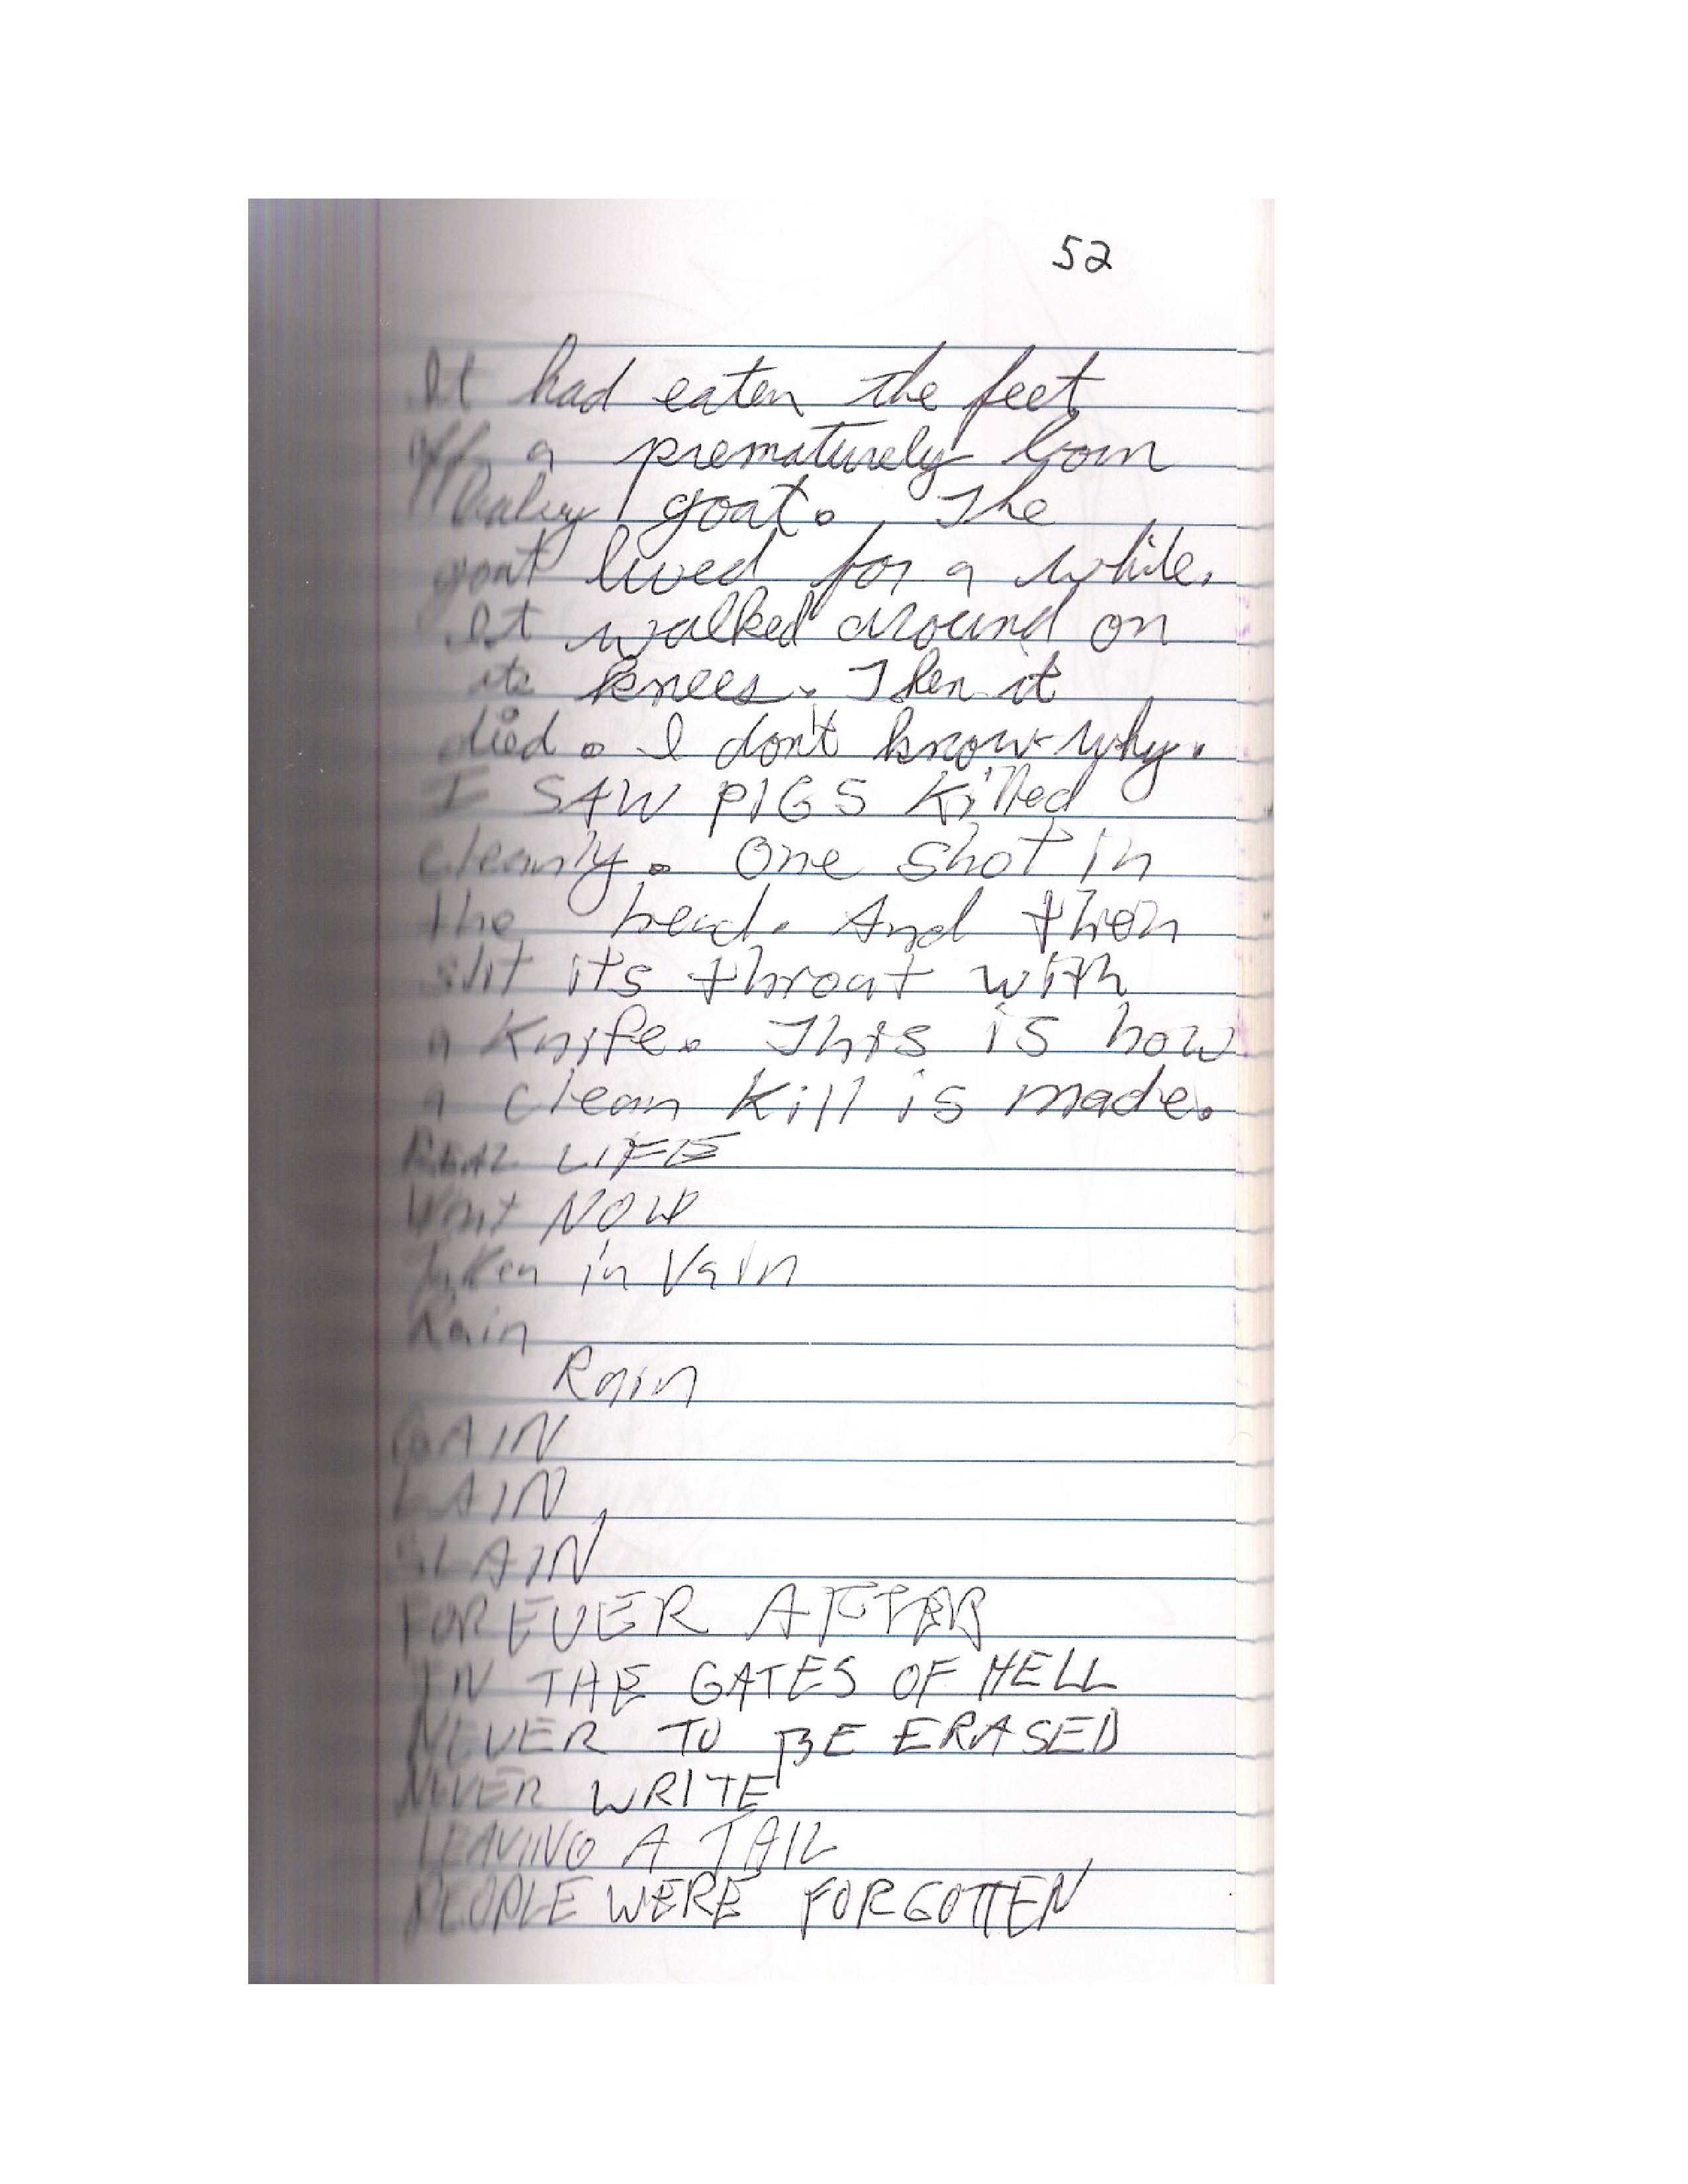 52
It had eaten the feet
off a prematurely born
goat. The
goat lived for a while.
It walked around on
its knees. Then it
died. I don't know why.
I SAW PIGS Killed
cleanly. One shot in
the head. And then
slit its throat with
a Knife. This is how
a clean Kill is made.
REAL LIFE
Want NOW
Taken in Vain
Rain
Rain
GAIN
LAIN
SLAIN
FOREVER AFTER
IN THE GATES OF HELL
NEVER TO BE ERASED
NEVER WRITE
LEAVING A TAIL
PEOPLE WERE FORGOTTEN